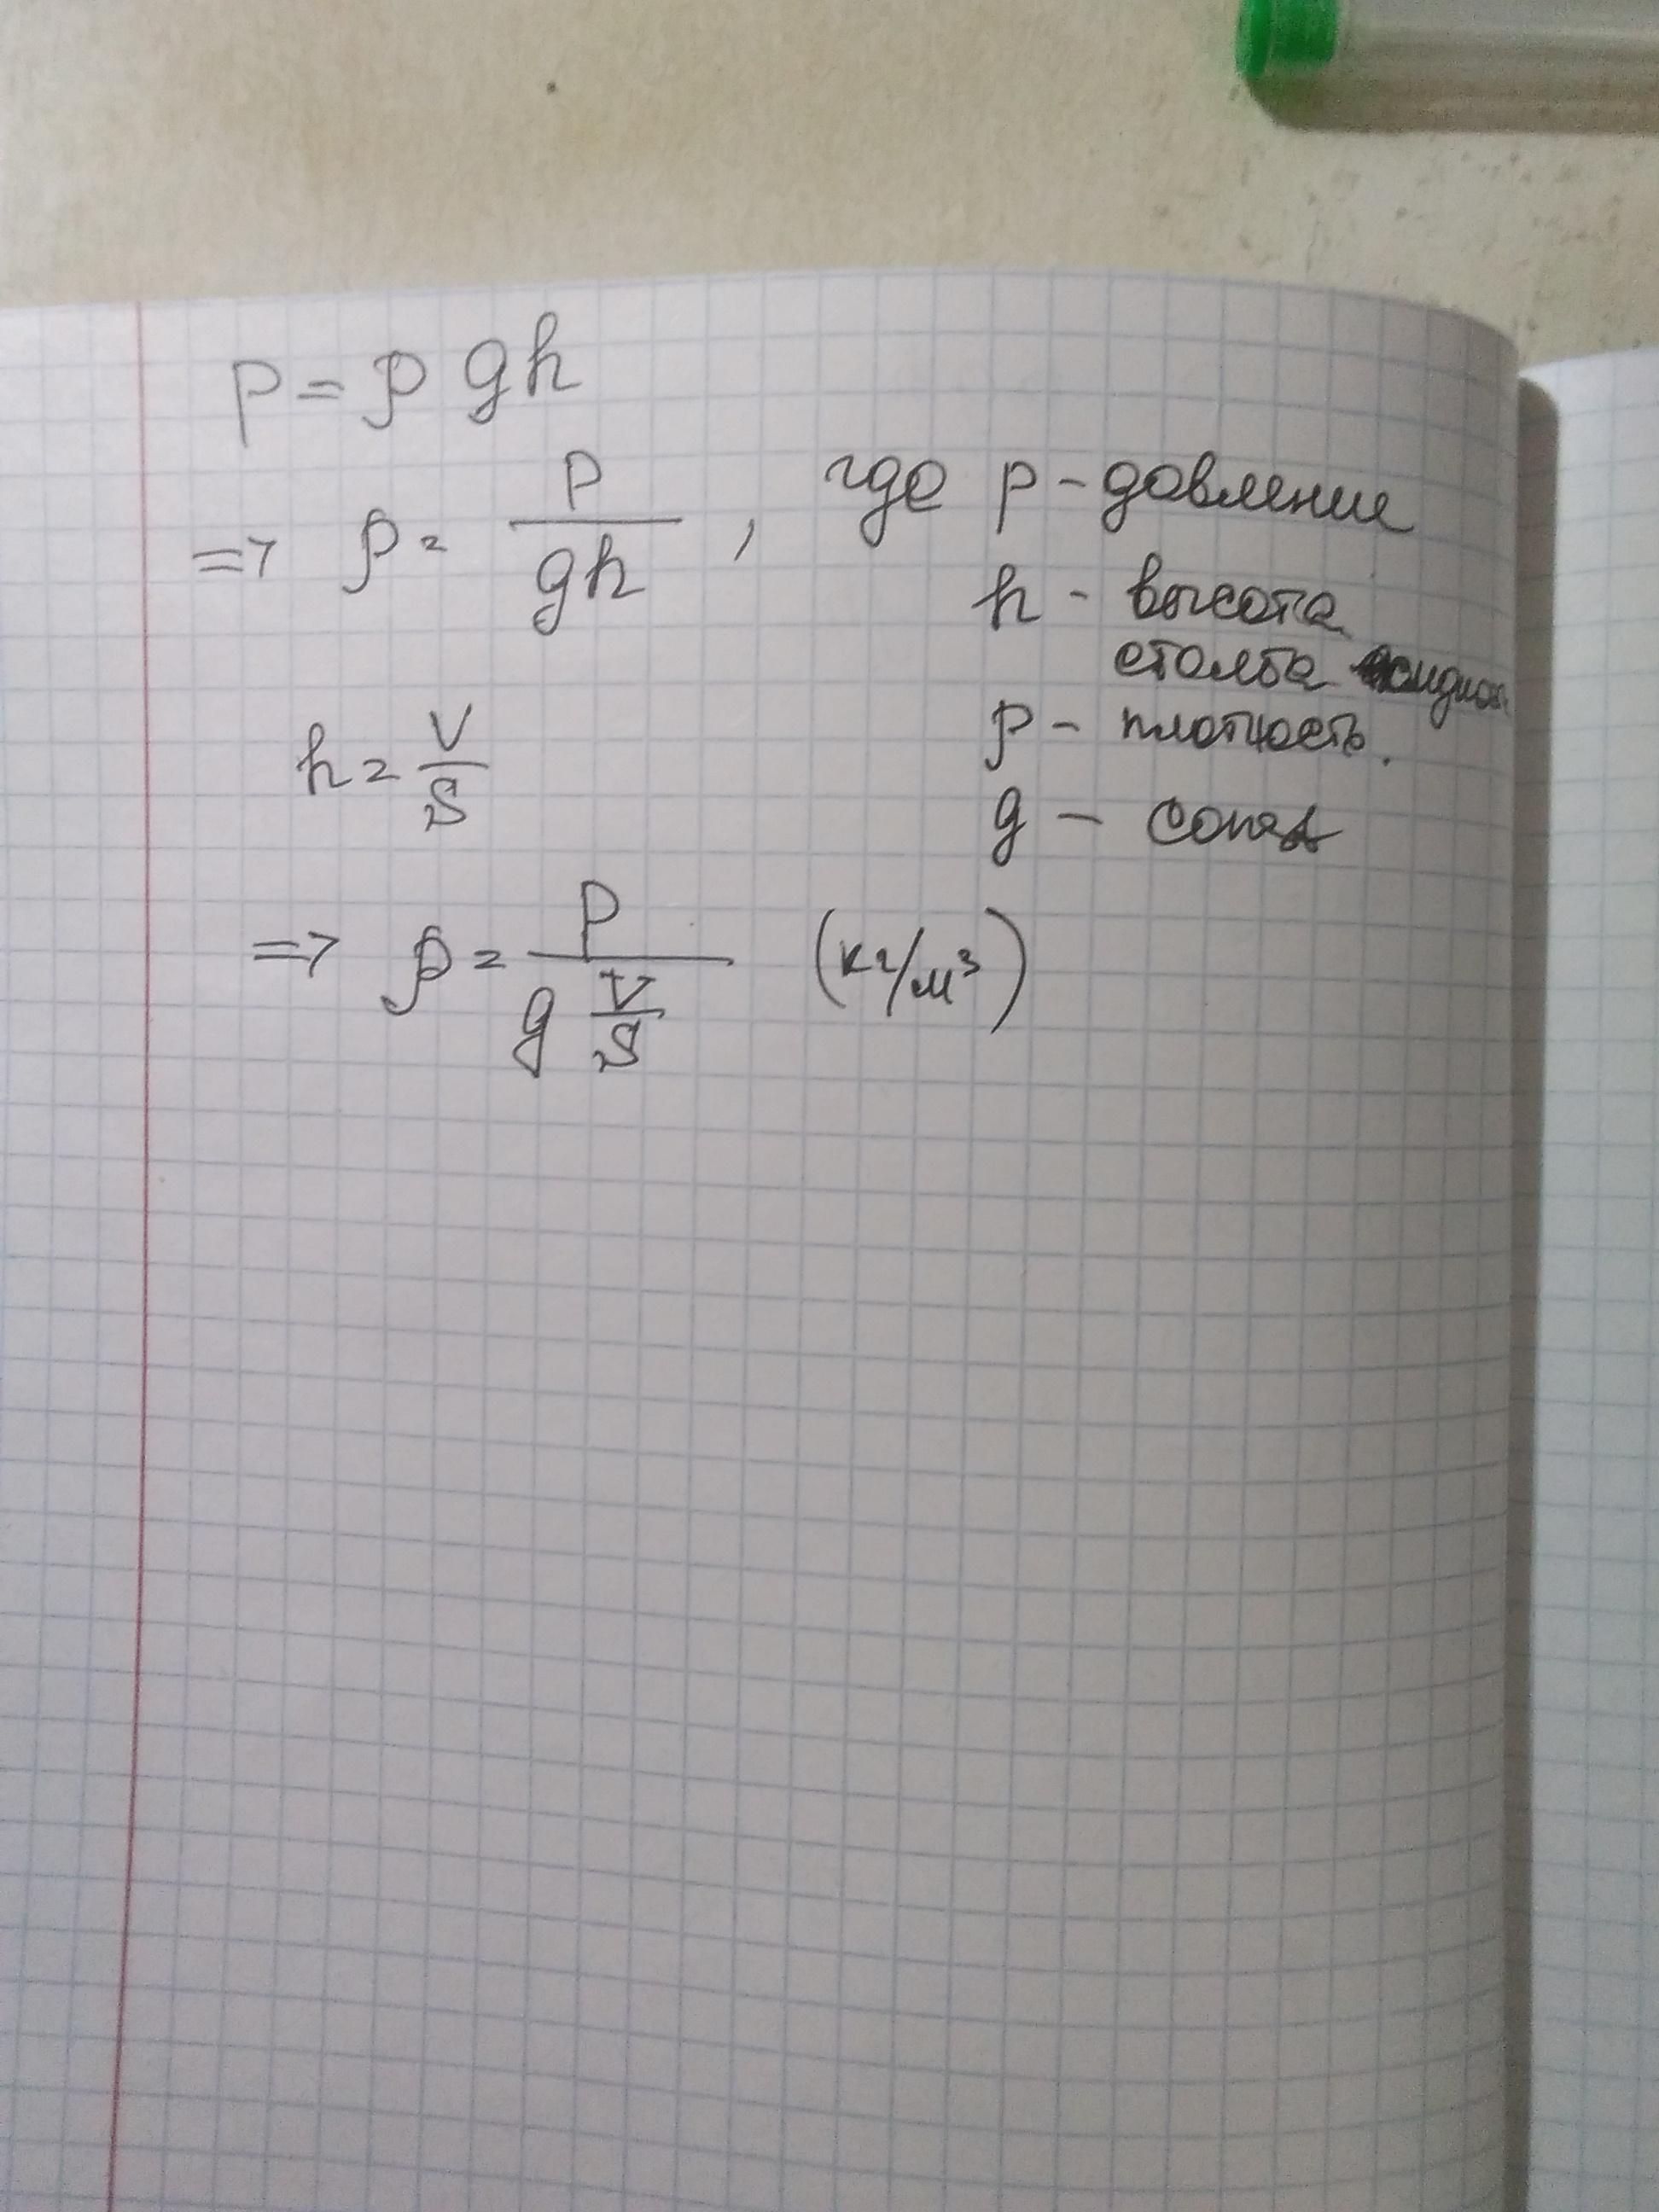 P = ρ gh
=> ρ = P / gh , где p - давление
h - высота
столба жидкос
h = V / S
ρ - плотность.
g - const
=> ρ = P / g V/S (кг/м³)